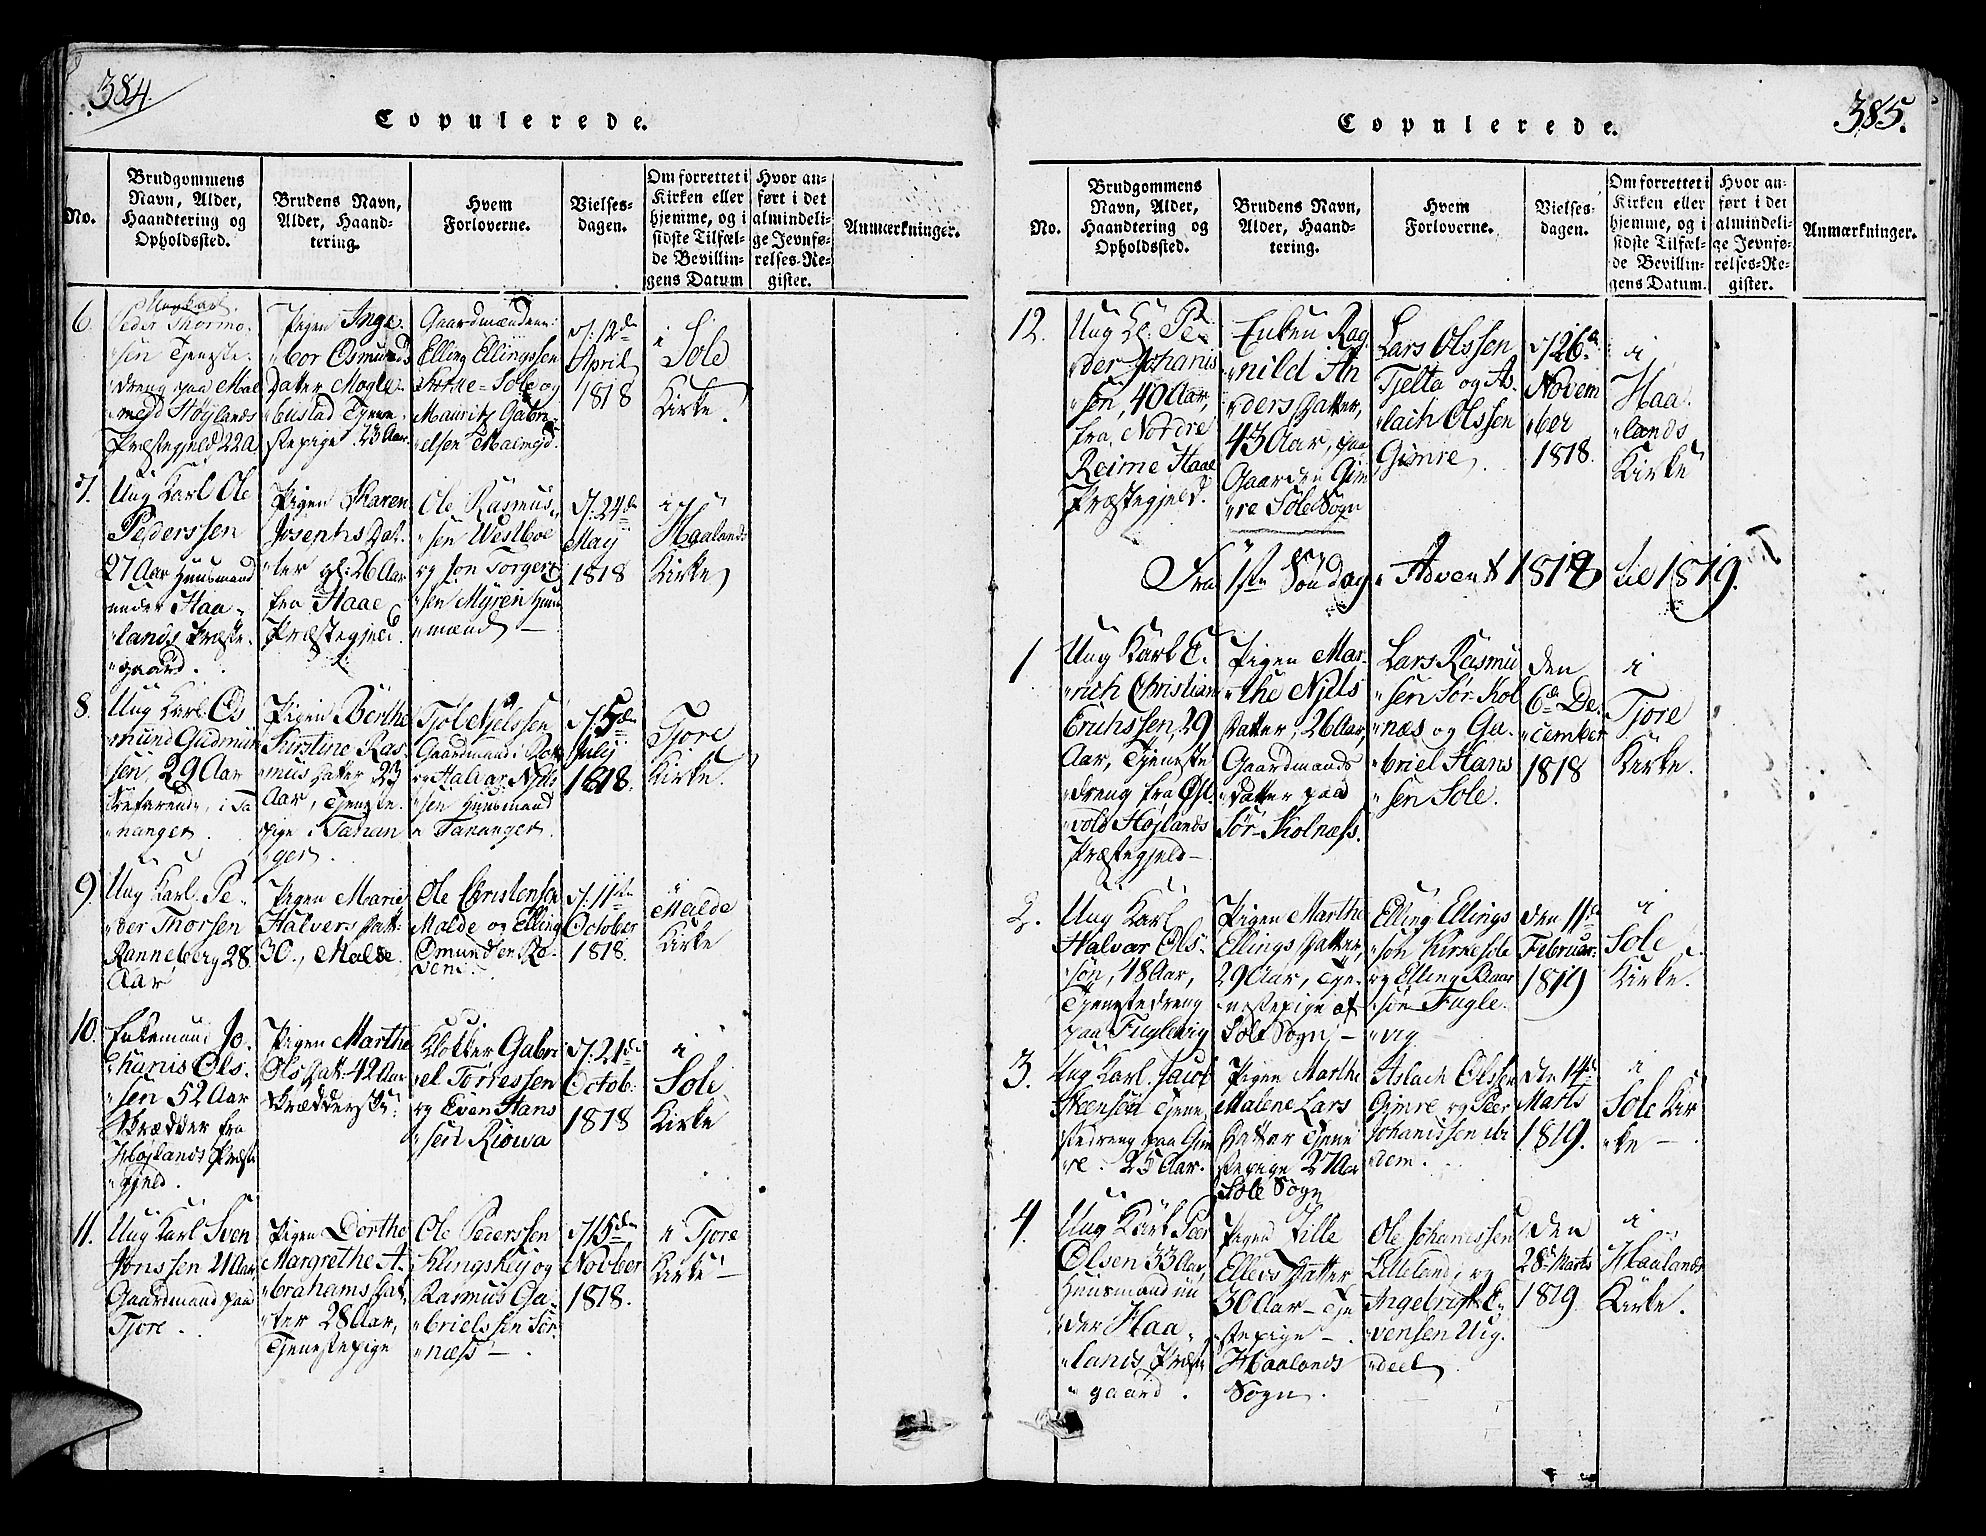 384.
Copulerede.
No.
Brudgommens
Navn, Alder,
Haandtering og
Opholdssted.
Brudens Navn,
Alder, Haand-
tering.
Hvem
Forloverne.
Vielses-
dagen.
Om forrettet i
Kirken eller
hjemme, og i
sidste Tilfæl-
de Bevillin-
gens Datum
Hvor an-
ført i det
almindeli-
ge Jevnfø-
relses-Re-
gister.
Anmærkninger.
6.
Ungkarl
Peder Thormo-
sen Tjeneste-
dreng paa Mal
mejd Høylands
Præstegjeld 22 A
Pigen Inge-
bor Osmunds
Datter Mogle-
bustad Tjene-
stepige 23 Aar.
Gaardmændene:
Elling Ellingssen
Sole og
Mauritz Gabri-
elsen Malmejd.
d. 12te
April
1818
i
Sole
Kirke.
7.
Ung Karl Ole
Pederssen
27 Aar Huusmand
under Haa-
lands Præste-
gaard.
Pigen Karen
Josephs Dat-
ter gl: 26 Aar
fra Haae
Præstegjeld.
Ole Rasmus-
sen Westboe
og Jon Torgers
sen Myren Huus
mænd
d. 24de
May
1818
i
Haalands
Kirke
8.
Ung Karl Os
mund Gudmun
sen, 29 Aar
Søefarende, i Ta
nanger.
Pigen Berthe
Kirstine Ras
mus Datter 23
Aar, Tjeneste-
pige i Tanan
ger.
Tjøl Njelssen
Gaardmand i
og Halvar Njels
sen Huusmand
i Tananger.
d. 5te
July
1818.
i
Tjore
Kirke.
9.
Ung Karl Pe-
der Thorsen
Ranneberg 28
Aar
Pigen Marie
Halvers Datt:
30, Malde.
Ole Christensen
Malde og Elling
Omundsen Ro-
d. 11te
October
1818.
i
Malde
Kirke
10.
Enkemand Jo-
hanis Ols-
sen 52 Aar
Skrædder fra
Højlands Præste
gjeld.
Pigen Marthe
Ols Dat: 42 Aar
Klokker Gabri
el Torressen
og Even Hans
sen Riowa
d. 21de
Octob:
1818
i
Sole
Kirke
11.
Ung Karl Sven
Jonssen 21 Aar,
Gaardmand paa
Tjore.
Pigen Dorthe
Margrethe A-
brahams Dat
ter 28 Aar,
Tjenestepige
Ole Pederssen
Klingshej og
Rasmus Ga-
brielssen Sør-
næss
d. 15de
Novber
1818.
i Tjore
Kirke
385.
Copulerede.
No.
Brudgommens
Navn, Alder,
Haandtering og
Opholdssted.
Brudens Navn,
Alder, Haand-
tering.
Hvem
Forloverne.
Vielses-
dagen.
Om forrettet i
Kirken eller
hjemme, og i
sidste Tilfæl-
de Bevillin-
gens Datum.
Hvor an-
ført i det
almindeli-
ge Jevnfø-
relses-Re-
gister.
Anmærkninger.
12.
Ung K: Pe-
der Johanis
sen, 40 Aar,
fra Nordre
Reime Haae
Præstegjeld.
Enken Rag
nild An
ders Datter,
43 Aar, paa
Gaarden Gim
re Sole Sogn
Lars Olssen
Tjelta og As-
lach Olssen
Gimre.
d 26de
Novem
ber
1818.
i
Haa
lands
Kirke
Fra 1ste Søndag Advent 1818 til 1819.
1
Ung Karl E-
rich Christian
Erichssen, 29
Aar, Tjeneste
dreng fra Øst
vold Højlands
Præstegjeld
Pigen Mar-
the Njels
Datter, 26 Aar,
Gaardmands
Datter paa
Sør-Kolnæss.
Lars Rasmu
sen Sør-Kol
næs og Ga-
briel Hans
sen Sole.
den
6te De-
cember
1818
i
Tjore
Kirke.
2.
Ung Karl
Halvar Ols-
søn, 18 Aar,
Tjenestedreng
paa Fuglevig
Pigen Marthe
Ellings Datter,
29 Aar, Tje-
nestepige af
Sole Sogn
Elling Ellings
søn Kirkesole
og Elling Baar
søn Fugle-
vig
den 11te
Februar:
1819
i
Sole
Kirke.
3.
Ung Karl Jacob
Tjene
stedreng paa Gim
re. 25 Aar.
Pigen Marthe
Malene Lars
Datter Tjene
stepige 27 Aar
Sole Sogn
Aslach Olssen
Gimre og Peer
Johanissen ibi
dem.
den 14de
Marts
1819.
i
Sole Kir
ke
4.
Ung Karl Peer
Olsen 33 Aar,
Huusmand un
der Haa
lands Præste
gaard.
Pigen Sille
Ellers Datter
30 Aar Tje
stepige
Haalands
Sogn.
Ole Johanissen
Lilleland, og
Ingebrigt E-
vensen Uig-
deel
den
28de Marts
1819.
i
Haalands
Kirke.